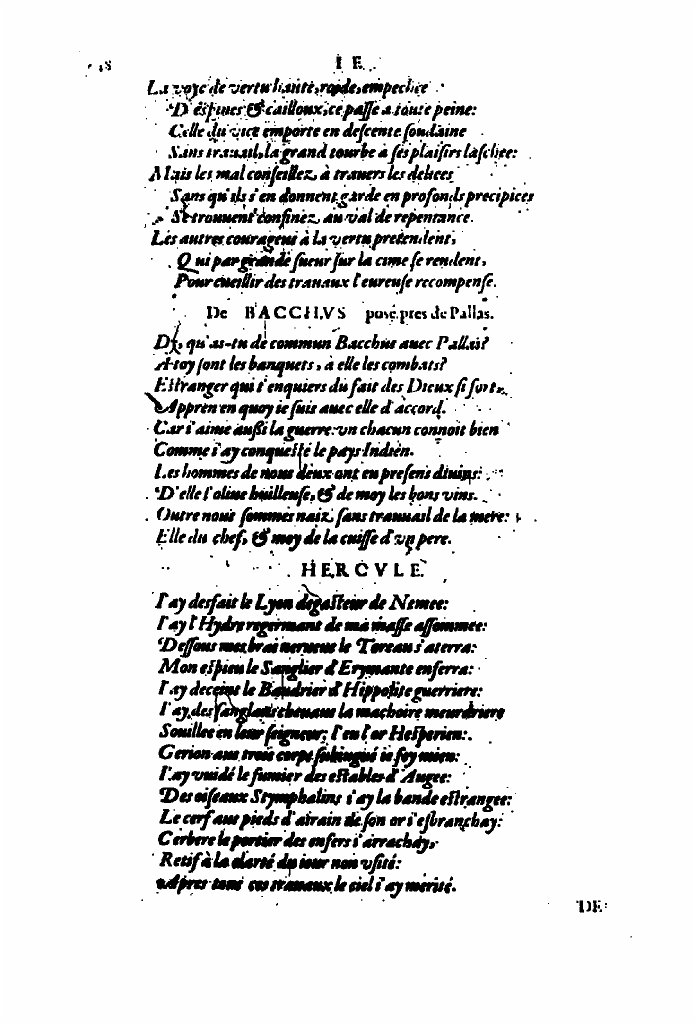 I E.
La voye de vertu haute, roide, empechee
D'espines & cailloux, ce passe a toute peine:
Celle du vice emporte en descente soudaine
Sans trauail, la grand tourbe à ses plaisirs laschee:
Mais les mal conseillez, à trauers les delices
Sans qu'ils s'en donnent garde en profonds precipices
Se trouuent confinez, au val de repentance.
Les autres courageus à la vertu pretendent,
Qui par grande sueur sur la cime se rendent,
Pour cueillir des trauaux l'eureuse recompense.
De BACCHVS posé pres de Pallas.
Dy, qu'as-tu de commun Bacchus auec Pallas?
A toy sont les banquets, à elle les combats?
Estranger qui t'enquiers du fait des Dieux si fort,
Appren en quoy ie suis auec elle d'accord.
Car i'aime außi la guerre: vn chacun connoit bien
Comme i'ay conquesté le pays Indien.
Les hommes de nous deux ont eu presens diuins:
D'elle l'oliue huilleuse, & de moy les bons vins.
Outre nous sommes naiz, sans trauail de la mere:
Elle du chef, & moy de la cuisse d'vn pere.
HERCVLE.
I'ay desfait le Lyon degasteur de Nemee:
I'ay l'Hydre regermant de ma masse assommee:
Dessous mes bras nerueus le Toreau s'aterra:
Mon espieu le Sanglier d'Erymante enferra:
I'ay deceint le Baudrier d'Hippolite guerriere:
I'ay des sanglans cheuaus la machoire meurdriere
Souillee en leur seigneur; l'eu l'or Hesperien:
Gerion aus trois corps subiugué ie fey mien:
I'ay vuidé le fumier des estables d'Augee:
Des oiseaux Stymphalins i'ay la bande estrangee:
Le cerf aus pieds d'airain de son or i'esbranchay:
Cerbere le portier des enfers i'arrachay,
Retif à la clarté du iour non vsité:
Apres tous ces trauaux le ciel i'ay merité.
DE